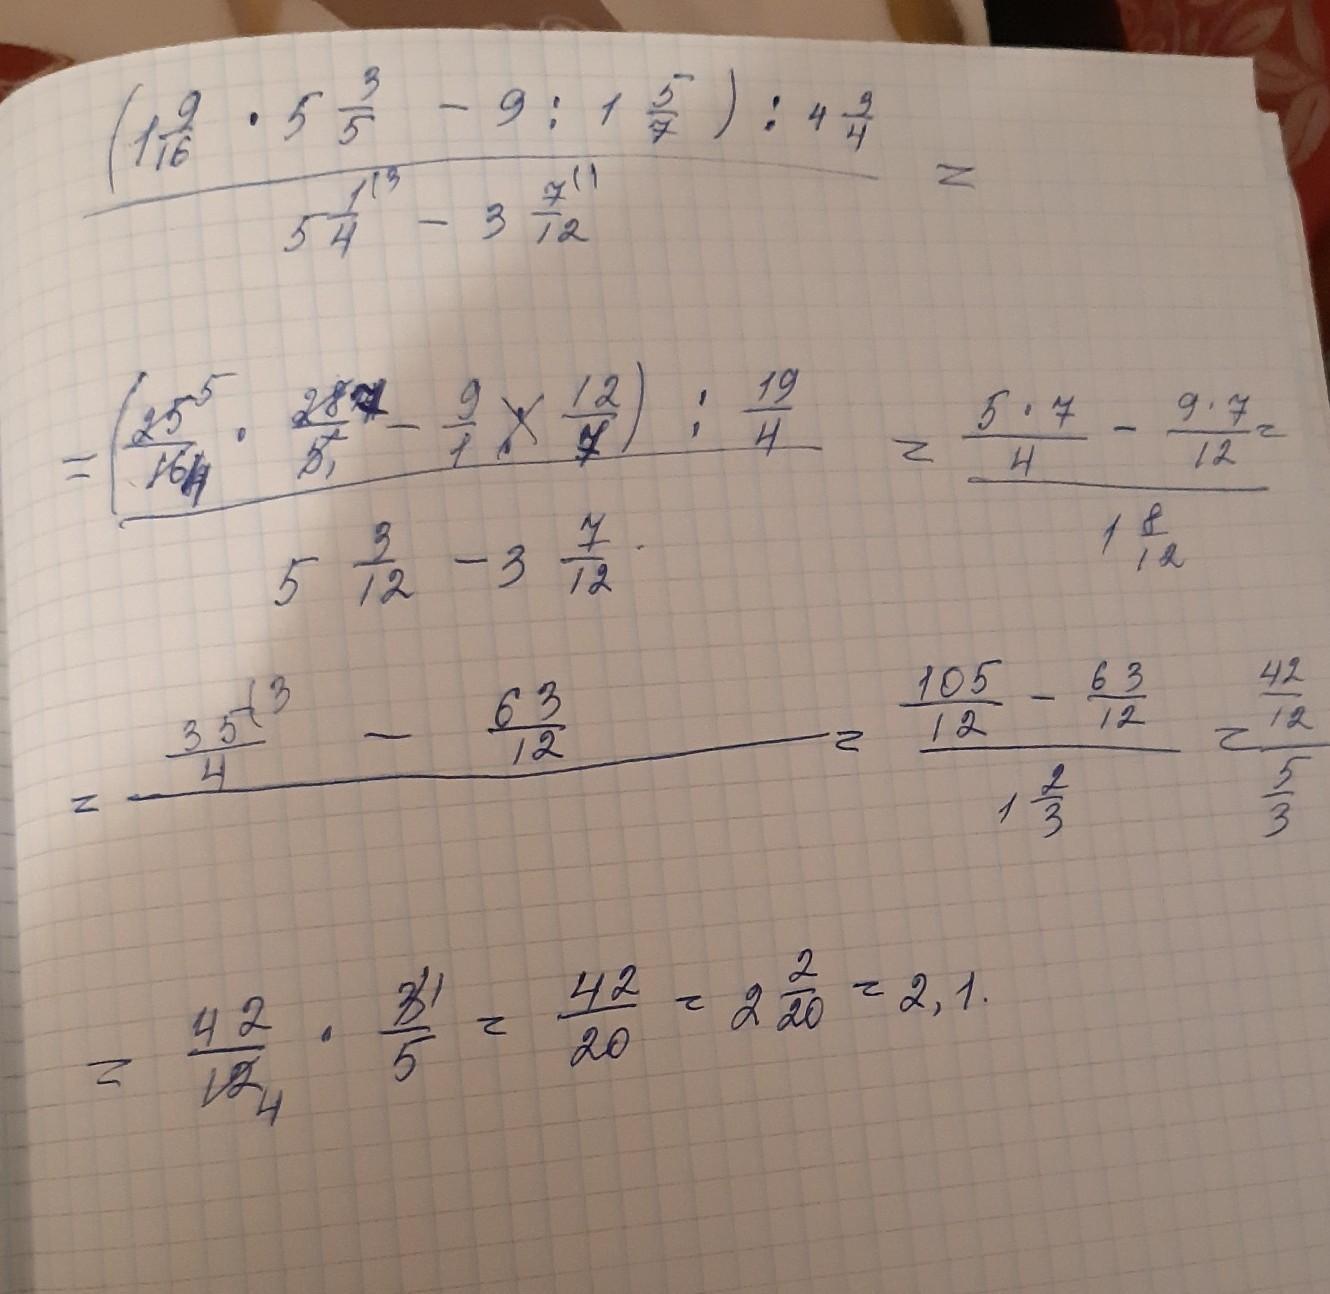 (1 9/16 · 5 3/5 - 9 : 1 5/7) : 4 3/4
5 1/4 (3 - 3 7/12 (1 =
= (25 5/16 4 · 28 7/5 1 - 9/1 × 12/7) : 19/4
5 3/12 - 3 7/12
= 5·7/4 - 9·7/12 =
1 8/12
= 35 (3/4 - 63/12
= 105/12 - 63/12
1 2/3
= 42/12
5/3
= 42/12 4 · 3 1/5 = 42/20 = 2 2/20 = 2,1.